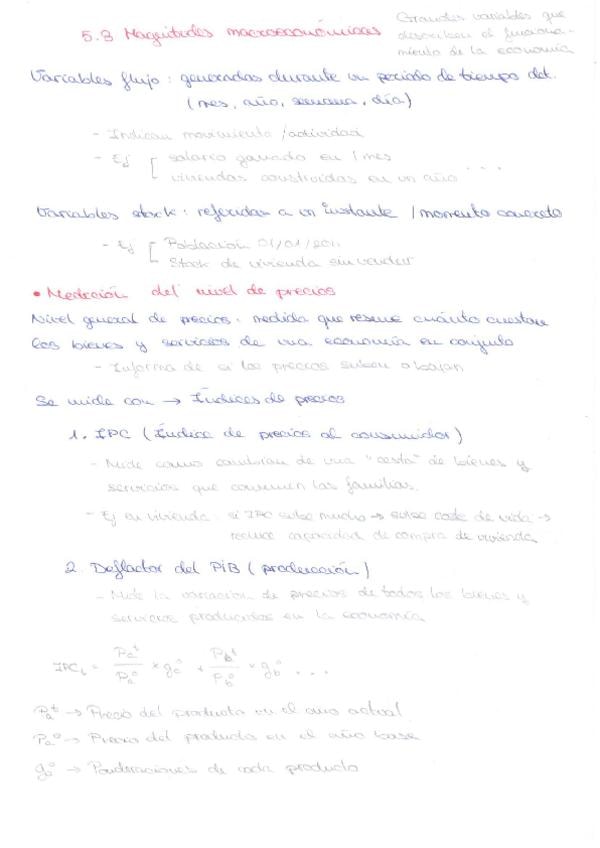 5.3 Magnitudes macroeconómicas
Grandes variables que
describen el funciona-
miento de la economía
Variables flujo: generadas durante un periodo de tiempo det.
(mes, año, semana, día)
- Indican movimiento / actividad
- Ej [ salario ganado en 1 mes
viviendas construidas en un año ...
Variables stock: referidas a un instante / momento concreto
- Ej [ Población 01/01/2011
Stock de vivienda sin vender
• Medición del nivel de precios
Nivel general de precios: medida que resume cuánto cuestan
los bienes y servicios de una economía en conjunto
- Informa de si los precios suben o bajan
Se mide con → Índices de precios
1. IPC (Índice de precios al consumidor)
- Mide como cambian de una "cesta" de bienes y
servicios que consumen las familias.
- Ej en vivienda: si IPC sube mucho → sube coste de vida →
reduce capacidad de compra de vivienda
2. Deflactor del PIB (producción)
- Mide la variación de precios de todos los bienes y
servicios producidos en la economía
IPC_t = P_a^t / P_a^0 × g_a^0 + P_b^t / P_b^0 × g_b^0 ...
P_a^t → Precio del producto en el año actual
P_a^0 → Precio del producto en el año base
g_a^0 → Ponderaciones de cada producto